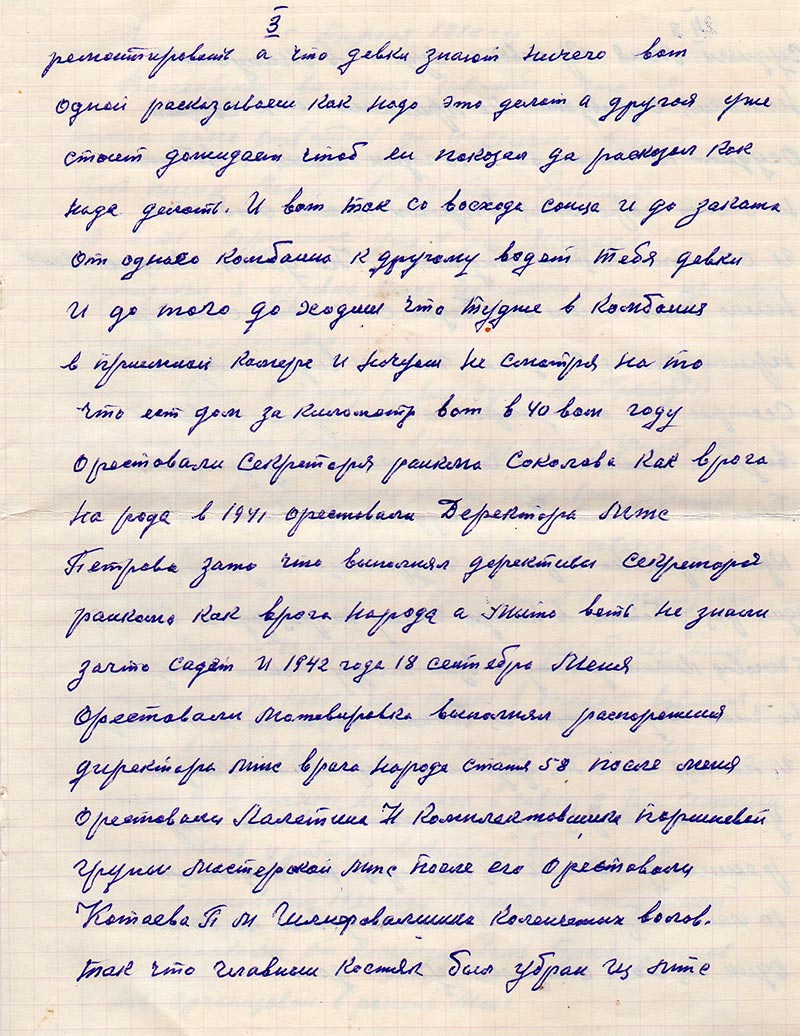 3
ремонтировать а что девки знают ничего вот
одной расказываеш как надо это делат а другая уже
стоит дожидает чтоб ей показал да расказал как
нада делоть. И вот так со восхода сонца и до заката
от одного комбаина к другому водет тебя девки
и до того до ходиш что тудже в комбаиня
в приемной камере и ночуеш не смотря на то
что ест дом за километр вот в 40 вом году
орестовали секреторя раикома Соколова как врага
на рода в 1941 орестовали Деректора мтс
Петрова зато что выполнял дерективы секреторя
раикома как врага народа а мыто веть не знали
зачто садят и 1942 года 18 сентебра меня
орестовали мативировка выполнял распорежения
директора мтс врага народа статя 58 после меня
орестовали Палетина Н комплектовшика поршневой
групы мастерской мтс после его орестовали
Котаева П М Шлифовальшика коленчетых волов.
так что главныи костяк был убран из мтс